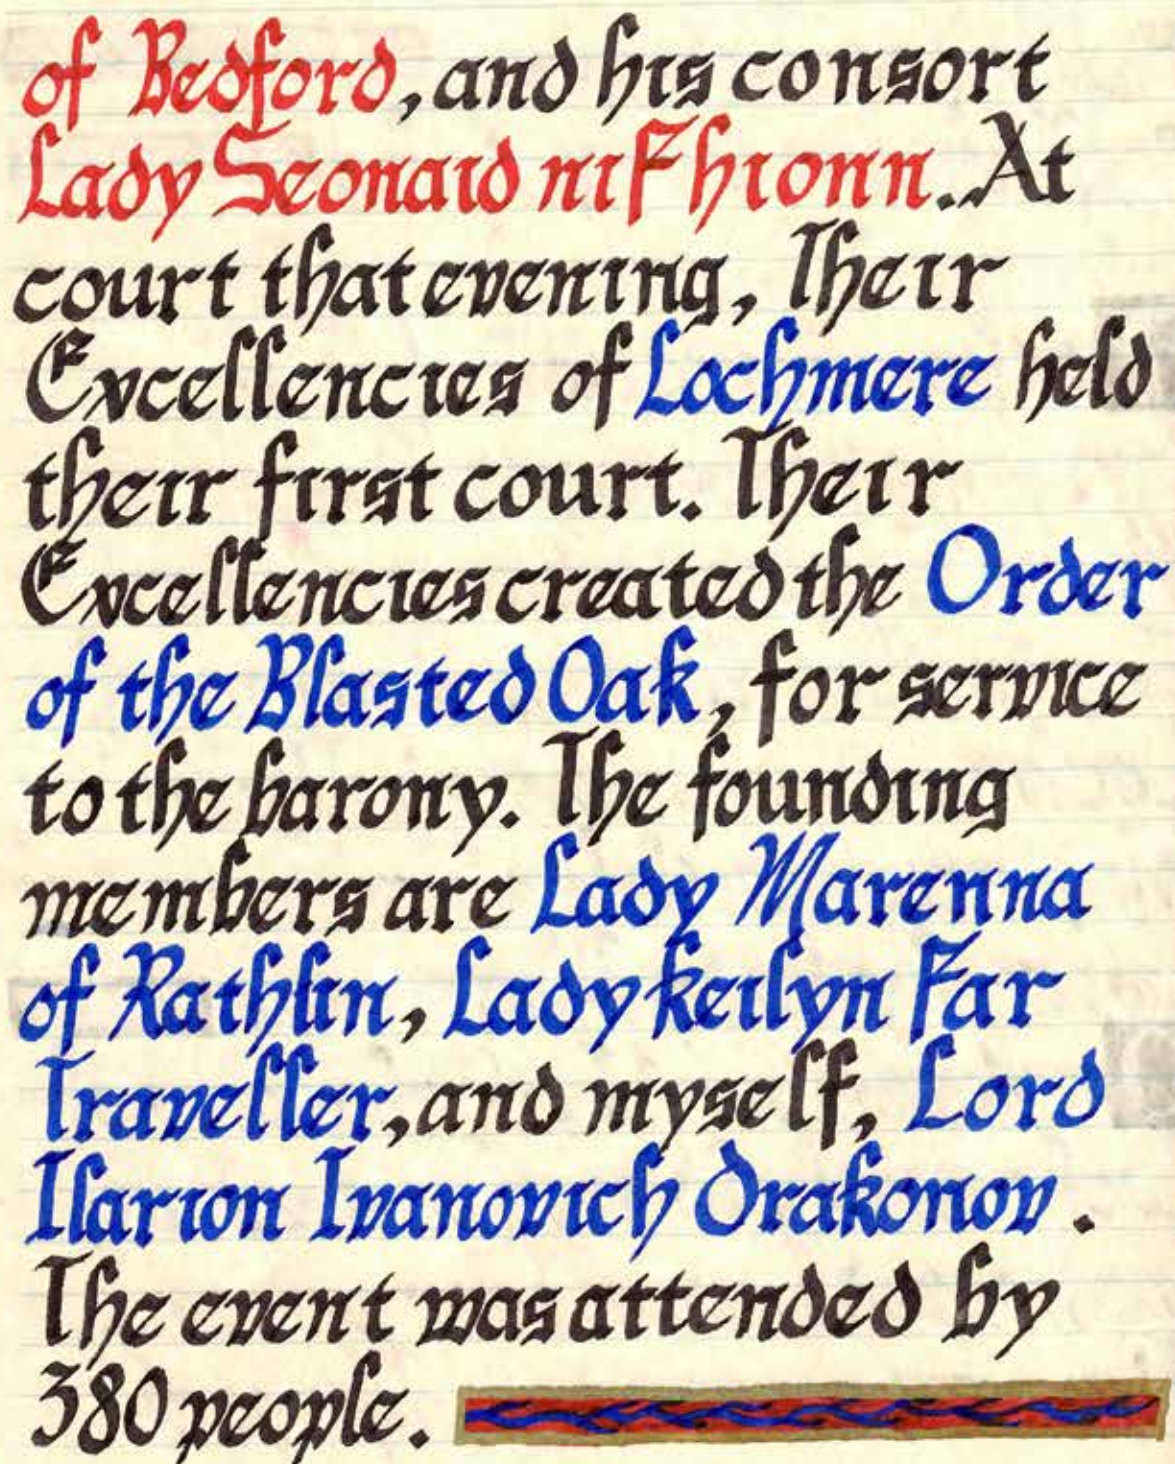 of Bedford, and his consort
Lady Seonaid niFhionn. At
court that evening, Their
Excellencies of Lochmere held
their first court. Their
Excellencies created the Order
of the Blasted Oak, for service
to the barony. The founding
members are Lady Marenna
of Rathlin, Lady Keilyn Far
Traveller, and myself, Lord
Ilarion Ivanovich Drakonov.
The event was attended by
380 people.